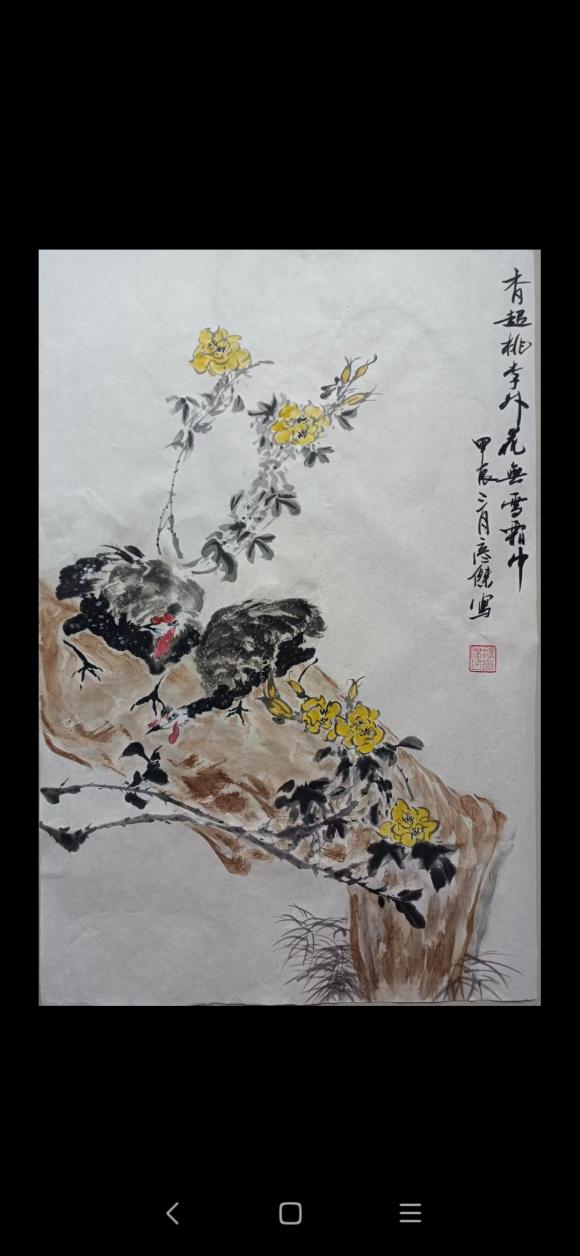 香超桃李外花無雪霜中
甲辰二月彥傑寫